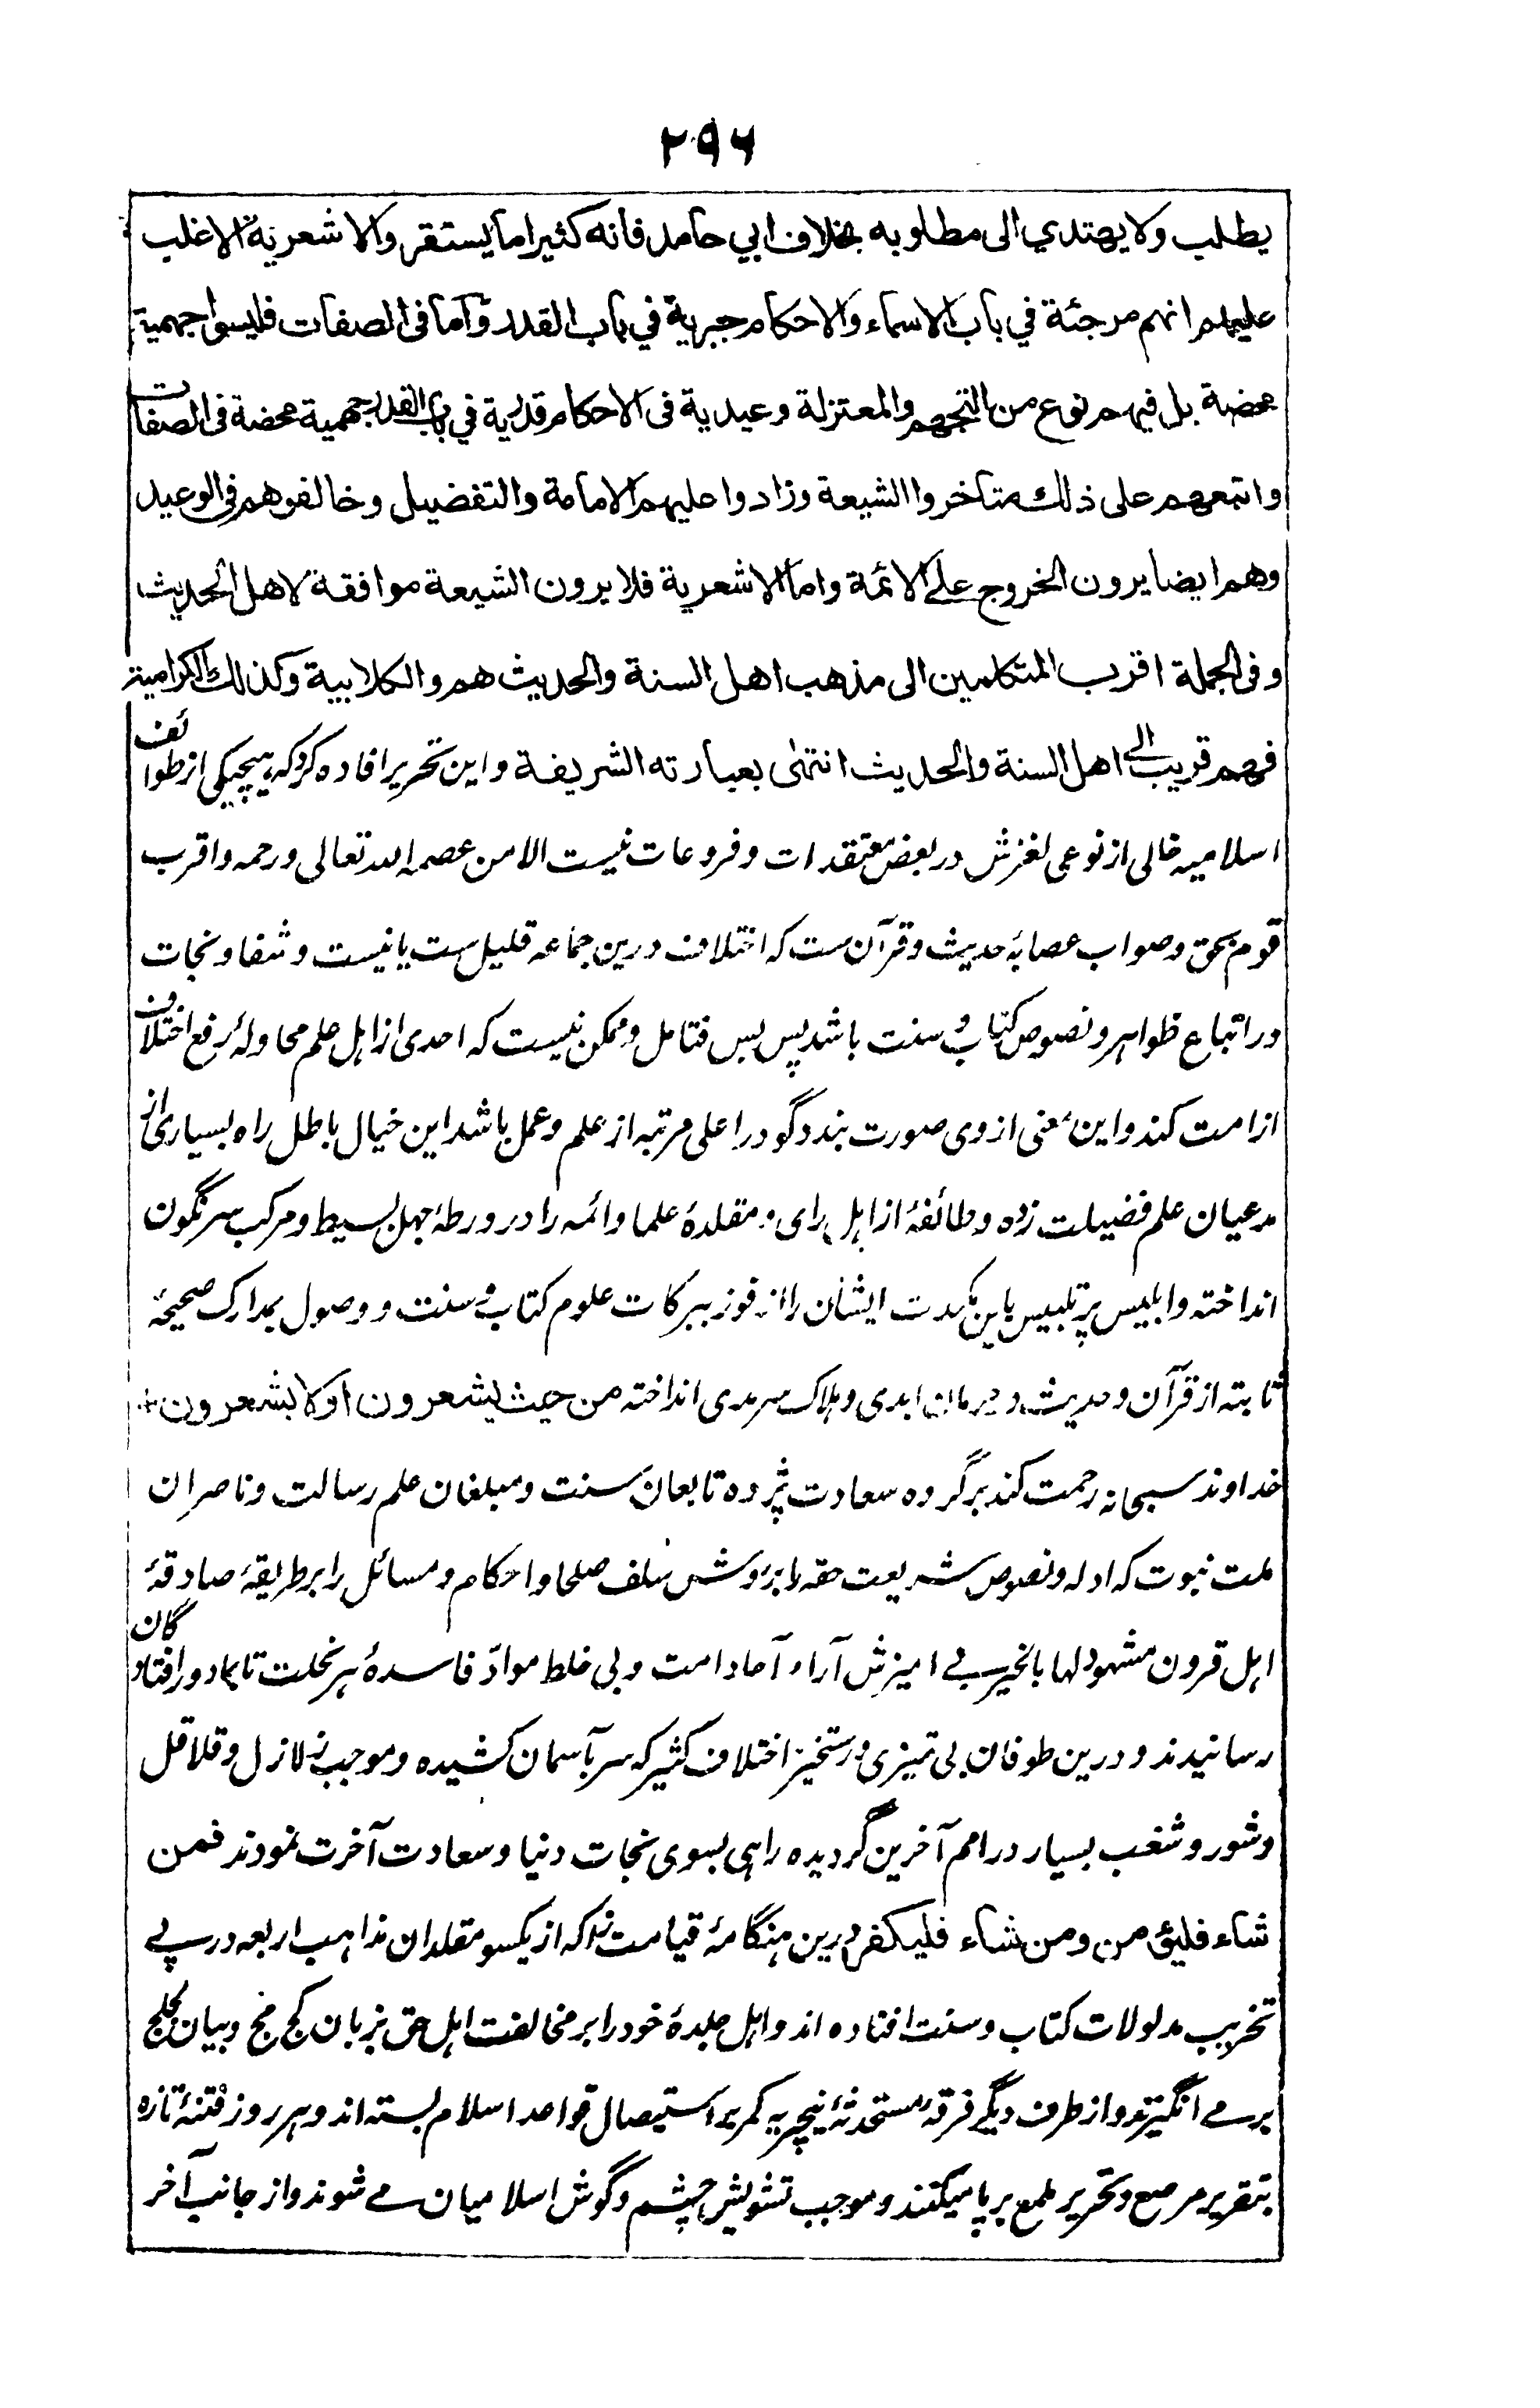 ۲۹۶
يطلب ولا يهتدي الى مطلوبه بخلاف ابي حامد فانه كثيرا ما يستقر والاشعرية الاغلب
عليهم انهم مرجئة في باب الاسماء والاحكام جبرية في باب القدر واما فى الصفات فليسوا جهمية
محضة بل فيهم نوع من التجهم والمعتزلة وعيدية فى الاحكام قدرية في باب القدر جهمية محضة فى الصفات
واتبعهم على ذلك متأخروا الشيعة وزادوا عليهم الامامة والتفضيل وخالفوهم فى الوعيد
وهم ايضا يرون الخروج على الائمة واما الاشعرية فلا يرون الشيعة موافقة لاهل الحديث
وفى الجملة اقرب المتكلمين الى مذهب اهل السنة والحديث هم والكلابية وكذلك الكرامية
فهم قريب الى اهل السنة والحديث انتهى بعبارته الشريفة واین تحریر افاده کرد که هیچیکی از طوائف
اسلامیه خالی از نوعی لغزش در بعض معتقدات و فروعات نیست الا من عصمه الله تعالی و رحمه و اقرب
قوم بحق و صواب عصابهٔ حدیث و قرآن ست که اختلاف درین جماعه قلیل ست یا نیست و شفا و نجات
در اتباع ظواهر و نصوص کتاب و سنت باشد پس بس فتامل و ممکن نیست که احدی از اهل علم محاولهٔ رفع اختلاف
از امت کند و این معنی از وی صورت بندد گو در اعلی مرتبه از علم و عمل باشد این خیال باطل راه بسیاری از
مدعیان علم فضیلت زده و طائفهٔ از اهل رای و مقلدهٔ علما و ائمه را در ورطهٔ جهل بسیط و مرکب سرنگون
انداخته و ابلیس پر تلبیس باین مکیدت ایشان را از فوز ببرکات علوم کتاب و سنت و وصول بمدارک صحیحهٔ
ثابته از قرآن و حدیث در حرمان ابدی و هلاک سرمدی انداخته من حيث يشعرون او لا يشعرون
خداوند سبحانه رحمت کند بر گروه سعادت پژوه تابعان سنت و مبلغان علم رسالت و ناصران
ملت نبوت که ادله و نصوص شریعت حقه را بروش سلف صلحا و احکام و مسائل را بر طریقهٔ صادقهٔ
اهل قرون مشهود لها بالخیر بے امیزش آراء آحاد امت و بی خلط موادّ فاسدهٔ هر نحلت تا بما دور افتادگان
رسانیدند و درین طوفان بی تمیزی و رستخیز اختلاف کثیر که سر بآسمان کشیده و موجب زلازل و قلاقل
و شور و شغب بسیار در امم آخرین گردیده راهی بسوی نجات دنیا و سعادت آخرت نمودند فمن
شاء فليؤمن ومن شاء فليكفر درین هنگامهٔ قیامت زا که از یکسو مقلدان مذاهب اربعه در پے
تخریب مدلولات کتاب و سنت افتاده اند و اهل جلدهٔ خود را بر مخالفت اهل حق بزبان کج مج و بیان
بر مے انگیزند و از طرف دیگر فرقهٔ مستحدثهٔ نیچریه کمر بر استیصال قواعد اسلام بسته اند و هر روز فتنهٔ تازه
بتقریر مرصع و تحریر ملمع برپا میکنند و موجب تشویش چشم و گوش اسلامیان مے شوند و از جانب آخر